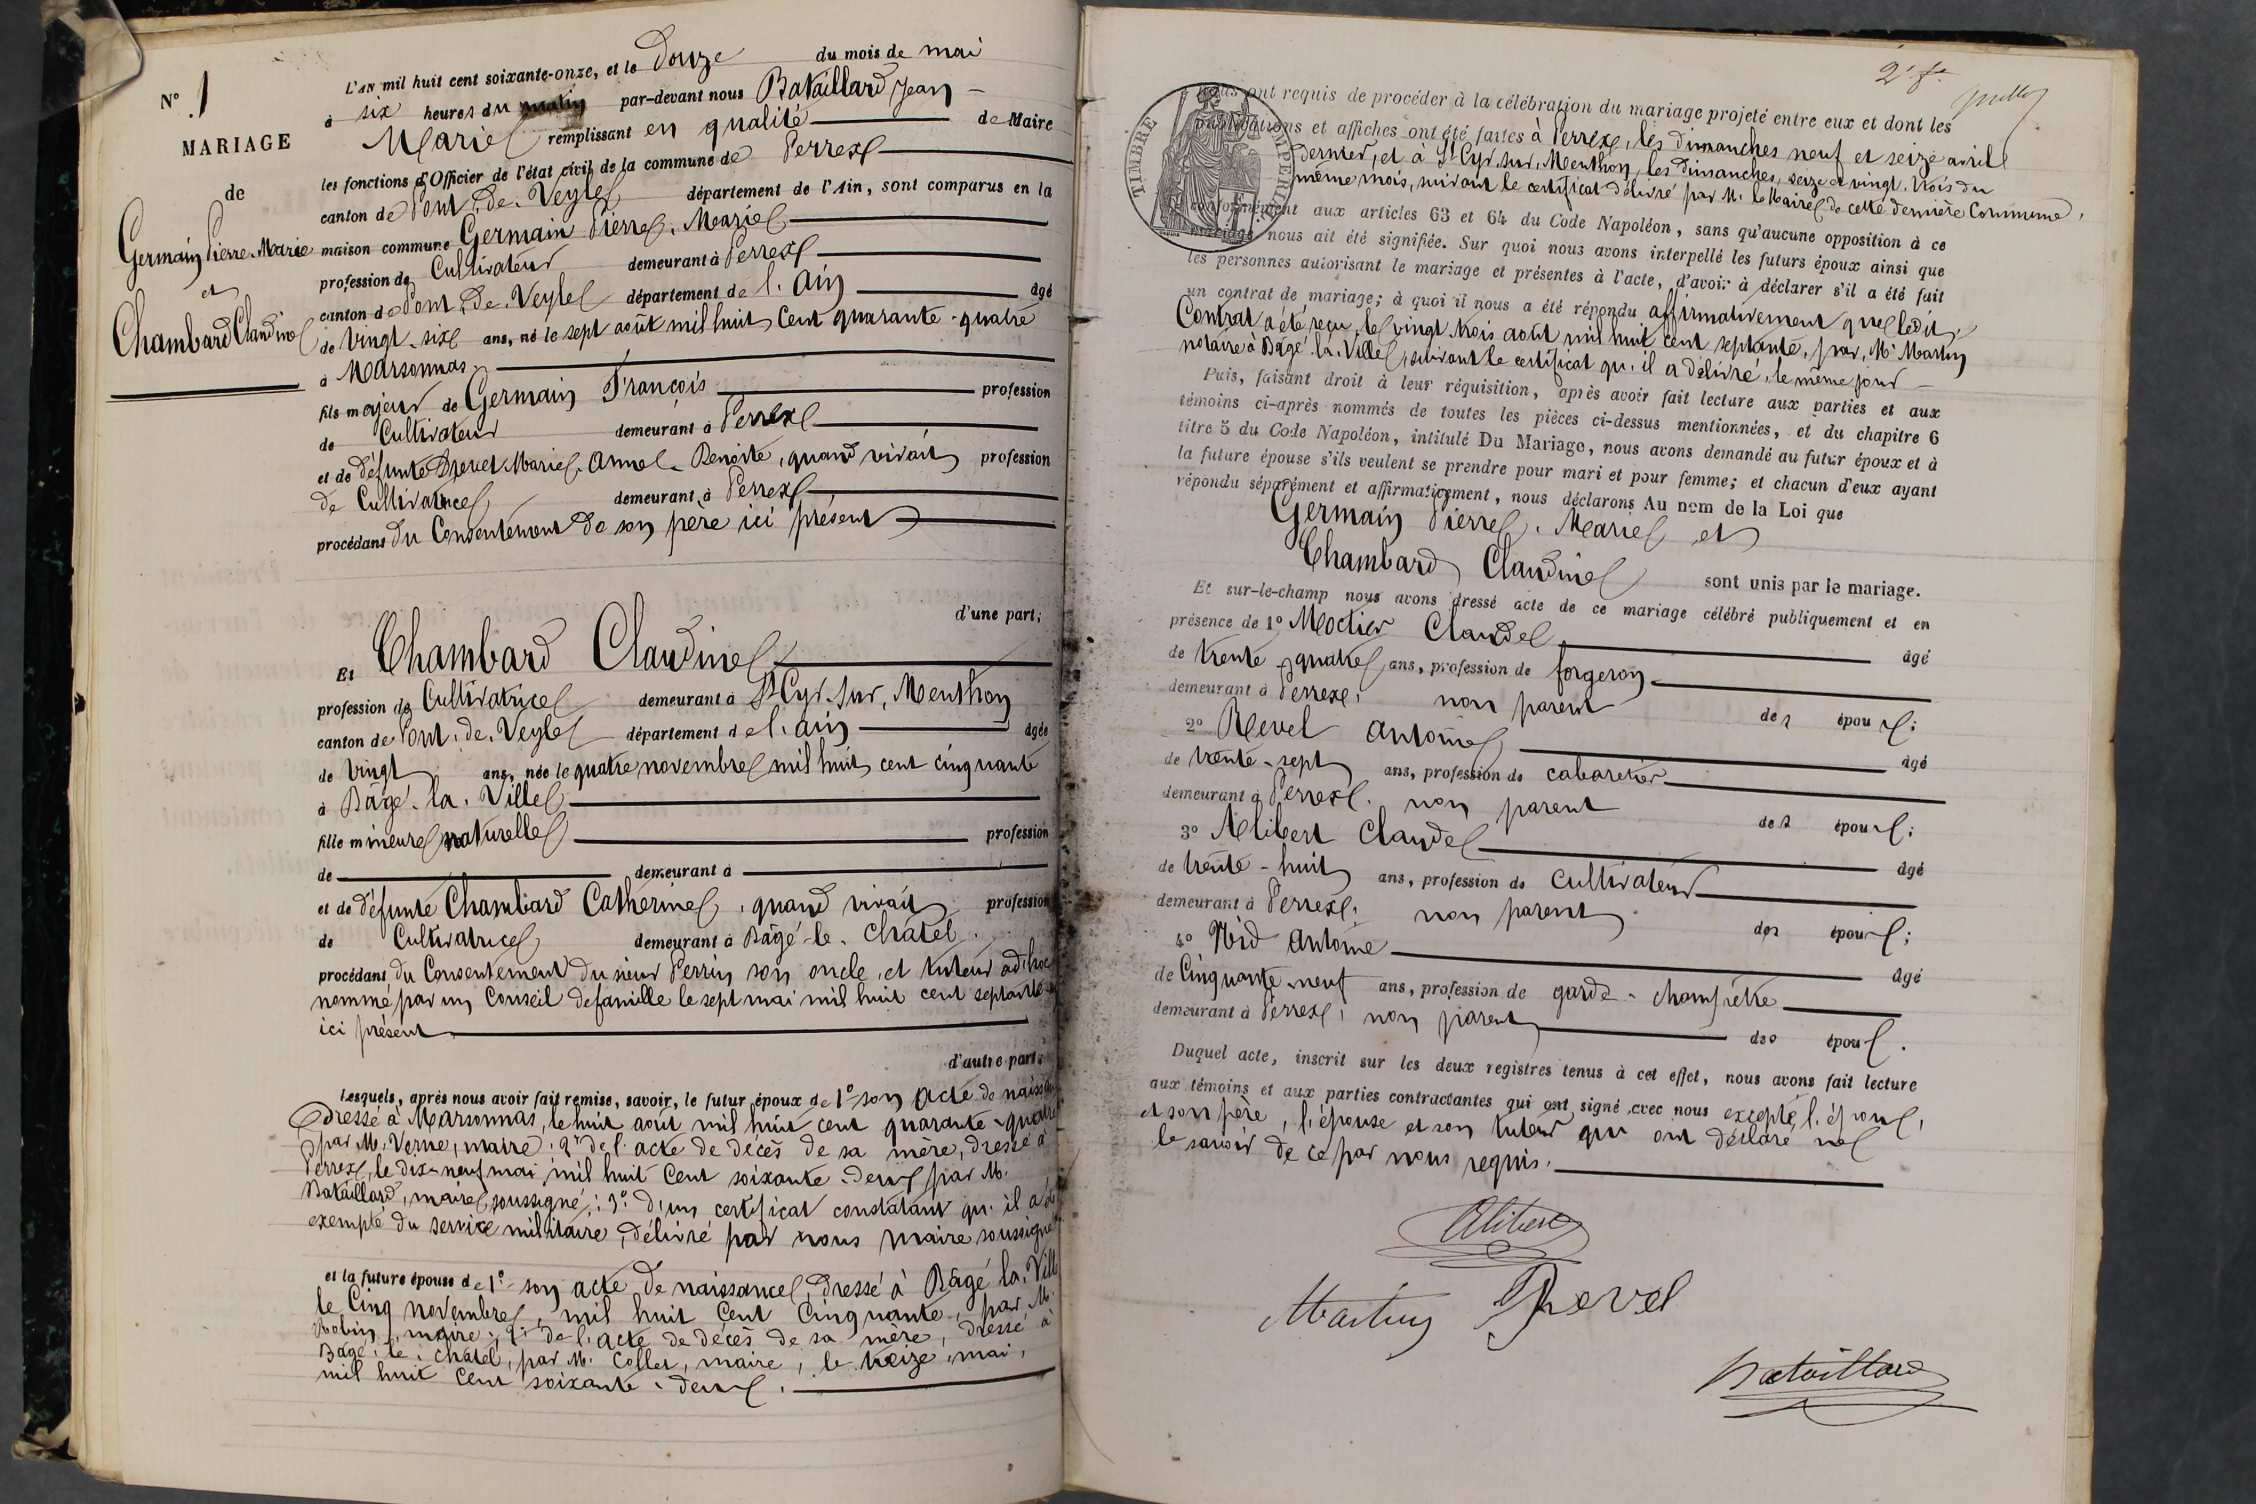 N° 1
MARIAGE
de
Germain Pierre-Marie
et
Chambard Claudine
L'AN mil huit cent soixante-onze, et le Douze du mois de mai
à six heures du matin par-devant nous Bataillard Jean-
Marie remplissant en qualité de Maire
les fonctions d'Officier de l'état civil de la commune de Perrex
canton de Pont-de-Veyle département de l'Ain, sont comparus en la
maison commune Germain Pierre-Marie
profession de Cultivateur demeurant à Perrex
canton de Pont-de-Veyle département de l'Ain âgé
de vingt-six ans, né le sept août mil huit cent quarante-quatre
à Marsonnas
fils majeur de Germain François profession
de Cultivateur demeurant à Perrex
et de défunte Drevet Marie-Anne-Benoite, quand vivait profession
de Cultivatrice demeurant à Perrex
procédant du Consentement de son père ici présent
d'une part;
Et Chambard Claudine
profession de Cultivatrice demeurant à St Cyr-sur-Menthon
canton de Pont-de-Veyle département de l'Ain âgée
de vingt ans, née le quatre novembre mil huit cent cinquante
à Bâgé-la-Ville
fille mineure naturelle profession
de demeurant à
et de défunte Chambard Catherine, quand vivait profession
de Cultivatrice demeurant à Bâgé-le-Châtel.
procédant du Consentement du sieur Perrin son oncle, et tuteur ad'hoc
nommé par un Conseil de famille le sept mai mil huit cent septante
ici présent
d'autre part.
Lesquels, après nous avoir fait remise, savoir, le futur époux de 1° son acte de naissance
Dressé à Marsonnas, le huit août mil huit cent quarante-quatre
par M. Verne, maire; 2° de l'acte de décès de sa mère, dressé à
Perrex, le dix-neuf mai mil huit cent soixante-deux par M.
Bataillard, maire, soussigné; 3° d'un certificat constatant qu'il a été
exempté du service militaire, délivré par nous maire soussigné
et la future épouse de 1° son acte de naissance, dressé à Bâgé-la-Ville
le Cinq novembre, mil huit cent cinquante, par M.
Robin, maire; 2° de l'acte de décès de sa mère, dressé à
Bâgé-le-Châtel, par M. Collet, maire, le treize mai,
mil huit cent soixante-deux.
2e fe
TIMBRE IMPERIAL
nous ont requis de procéder à la célébration du mariage projeté entre eux et dont les
publications et affiches ont été faites à Perrex, les dimanches neuf et seize avril
dernier, et à St Cyr-sur-Menthon, les dimanches, seize et vingt-trois du
même mois, suivant le certificat délivré par M. le Maire de cette dernière Commune,
conformément aux articles 63 et 64 du Code Napoléon, sans qu'aucune opposition à ce
mariage nous ait été signifiée. Sur quoi nous avons interpellé les futurs époux ainsi que
les personnes autorisant le mariage et présentes à l'acte, d'avoir à déclarer s'il a été fait
un contrat de mariage; à quoi il nous a été répondu affirmativement que ledit
Contrat a été reçu, le vingt trois août mil huit cent septante, par, Mr Martin
notaire à Bâgé-la-Ville, suivant le certificat qu'il a délivré, le même jour
Puis, faisant droit à leur réquisition, après avoir fait lecture aux parties et aux
témoins ci-après nommés de toutes les pièces ci-dessus mentionnées, et du chapitre 6
titre 5 du Code Napoléon, intitulé Du Mariage, nous avons demandé au futur époux et à
la future épouse s'ils veulent se prendre pour mari et pour femme; et chacun d'eux ayant
répondu séparément et affirmativement, nous déclarons Au nom de la Loi que
Germain Pierre-Marie et
Chambard Claudine sont unis par le mariage.
Et sur-le-champ nous avons dressé acte de ce mariage célébré publiquement et en
présence de 1° Moctier Claude âgé
de trente-quatre ans, profession de forgeron
demeurant à Perrex, non parent des époux;
2° Revel Antoine âgé
de trente-sept ans, profession de cabaretier
demeurant à Perrex, non parent des époux;
3° Alibert Claude âgé
de trente-huit ans, profession de Cultivateur
demeurant à Perrex, non parent des époux;
4° Nid Antoine âgé
de Cinquante-neuf ans, profession de garde-champêtre
demeurant à Perrex, non parent des époux.
Duquel acte, inscrit sur les deux registres tenus à cet effet, nous avons fait lecture
aux témoins et aux parties contractantes qui ont signé avec nous excepté, l'époux,
et son père, l'épouse et son tuteur qui ont déclaré ne
le savoir de ce par nous requis.
Alibert
Martin Revel
Bataillard